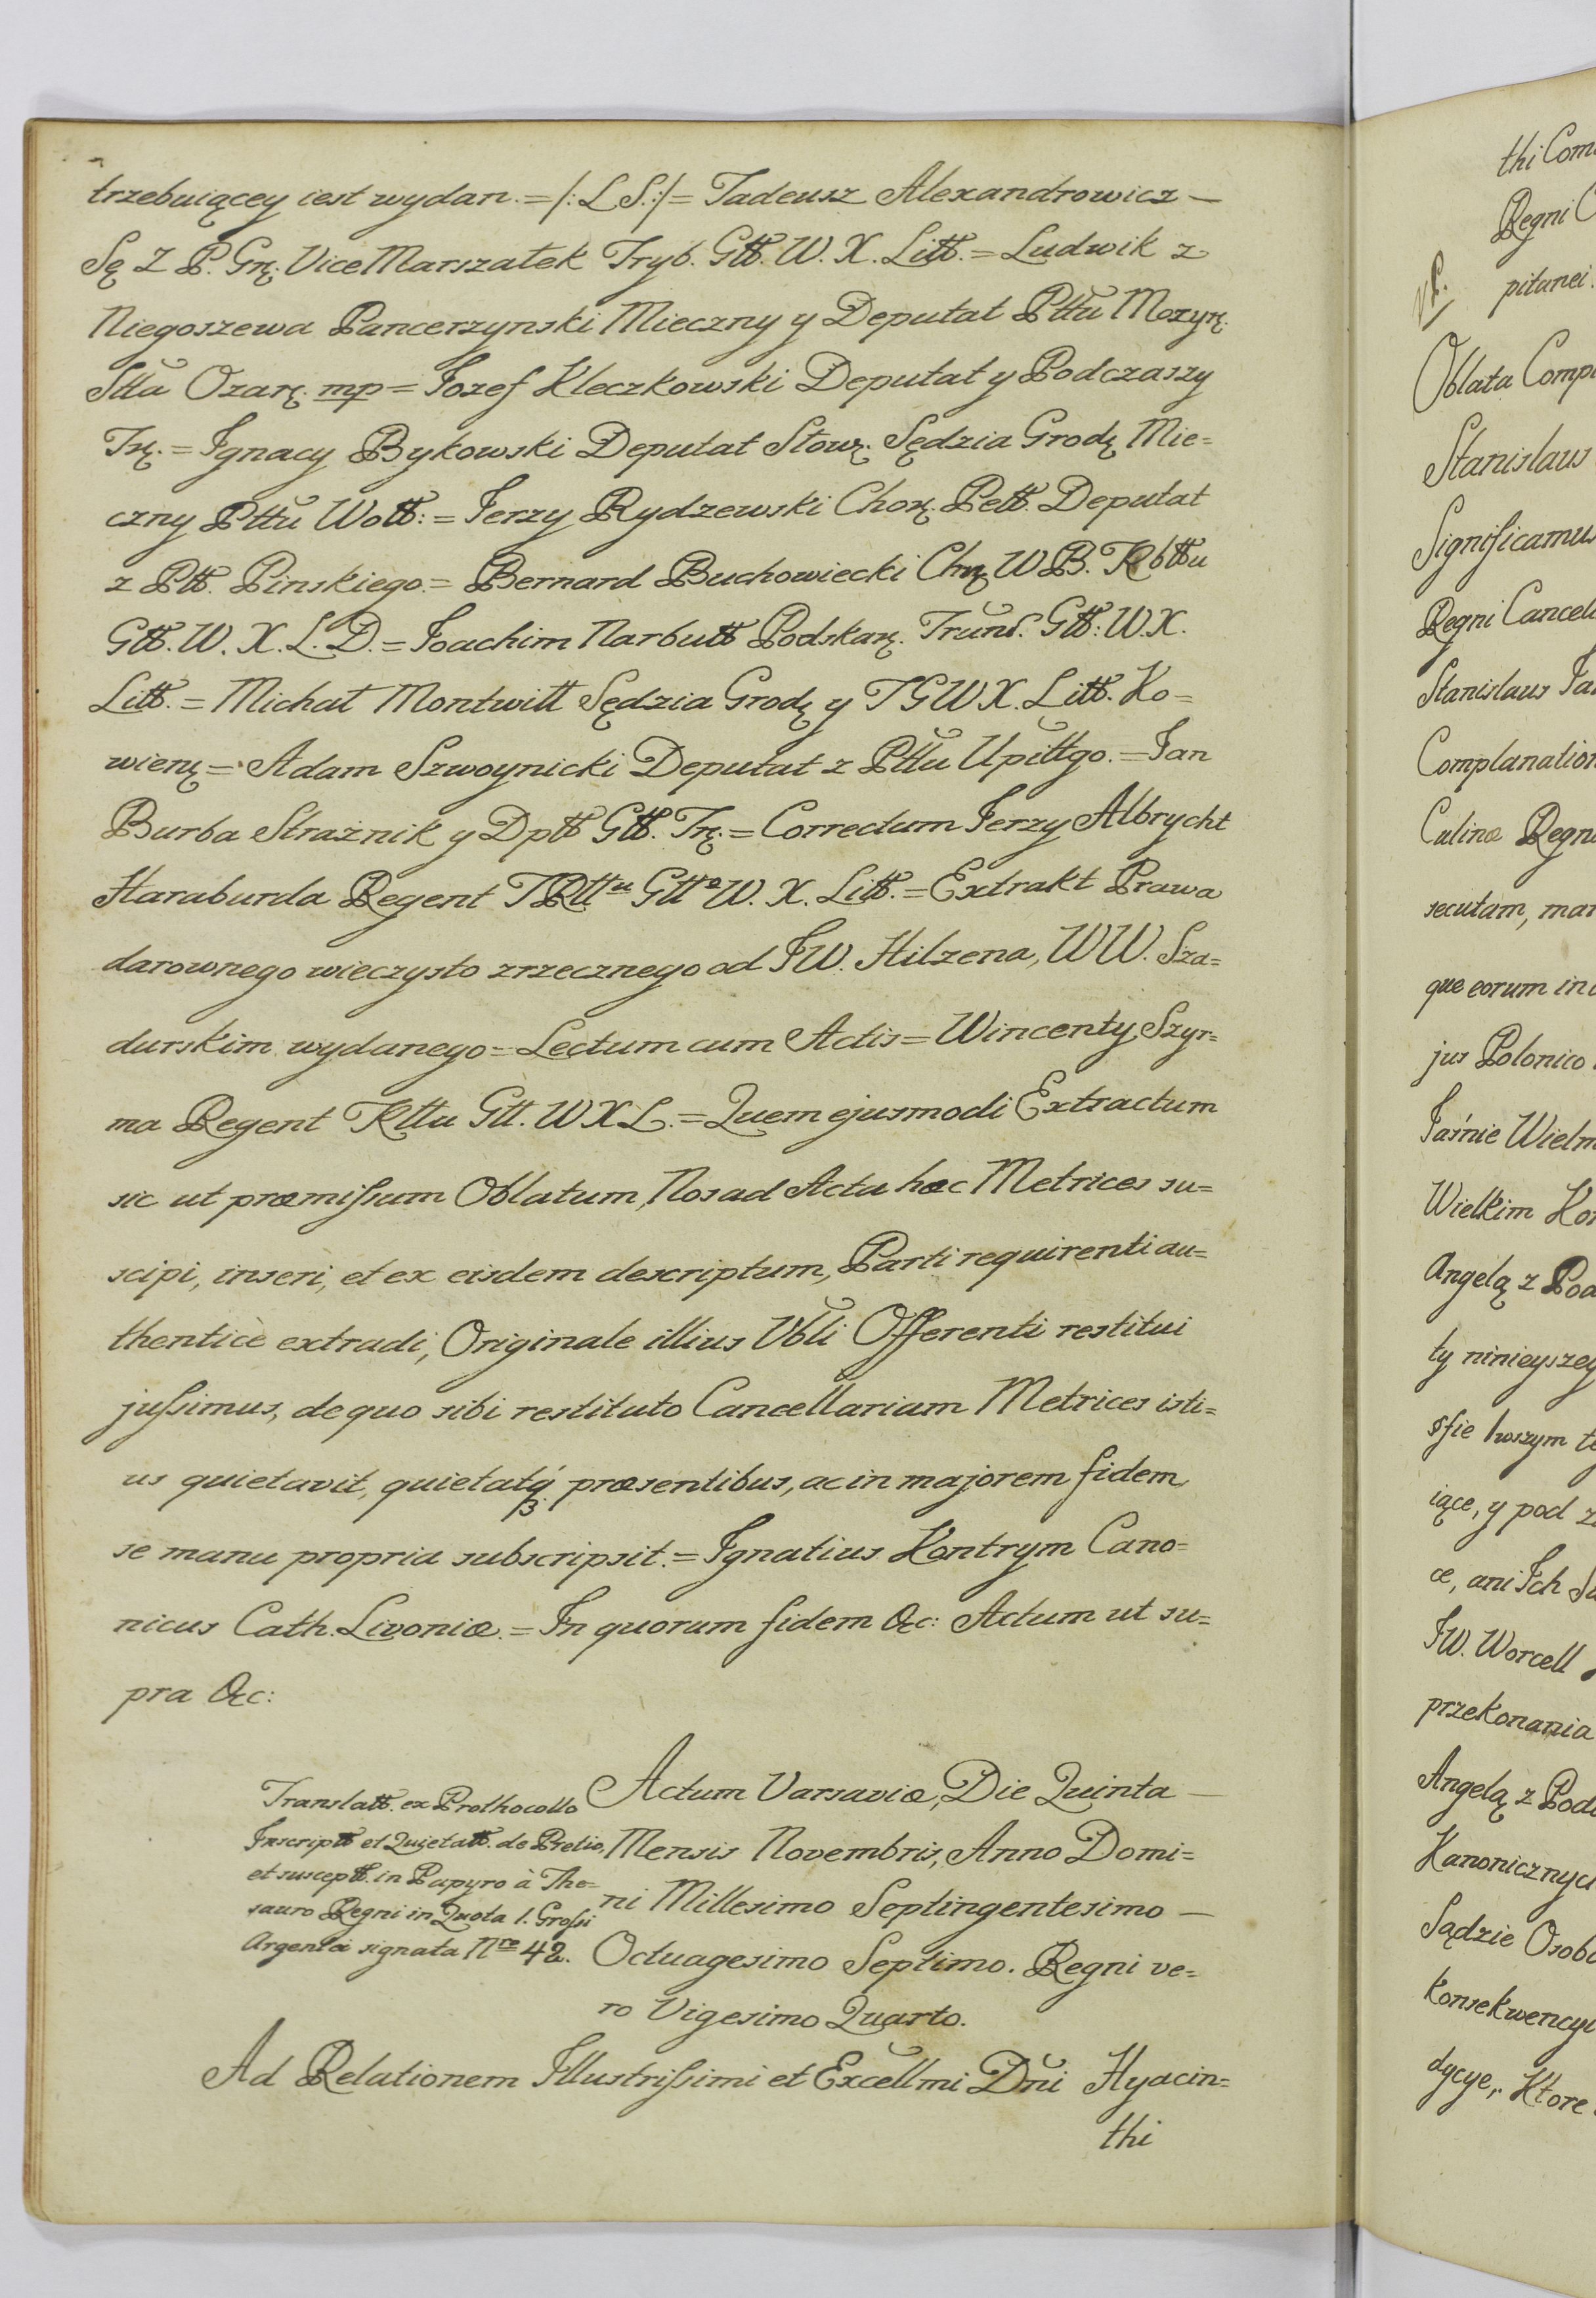 trzebuiącey iest wydan. = /: L S.:/ = Tadeusz Alexandrowicz —
Sę Z P. Grę. Vice Marszałek Tryb. Gtt. W. X. Litt. = Ludwik z
Niegoszewa Pancerzynski Mieczny y Deputat Pttu Mozyrę.
Sttu Ozarę. mp = Jozef Kleczkowski Deputat y Podczaszy
Trę. = Ignacy Bykowski Deputat Słowę. Sędzia Grodę Mie=
czny Pttu Wołł: = Jerzy Rydzewski Chorę. Pett. Deputat
z Ptt. Pinskiego. = Bernard Buchowiecki Chrę W B.
Gtt. W. X. L. D. = Joachim Narbutt Podskarę. Gtt: W. X.
Litt. = Michał Montwiłł Sędzia Grodę y T G W X. Litt. Ko=
wienę = Adam Szwoynicki Deputat z Pttu Upittgo. = Jan
Burba Strażnik y Dptt Gtt. Trę. = Correctum Jerzy Albrycht
Haraburda Regent TRttu Gtto W. X. Litt. = Extrakt Prawa
darownego wieczysto zrzecznego od JW. Hilzena, WW. Sza=
durskim wydanego = Lectum cum Actis = Wincenty Szyr=
ma Regent Gtt. W X L. = Quem ejusmodi Extractum
sic ut præmissum Oblatum, Nos ad Acta hæc Metrices su=
scipi, inseri, et ex eisdem descriptum, Parti requirenti au=
thenticè extradi, Originale illius Vbli Offerenti restitui
jussimus, de quo sibi restituto Cancellariam Metrices isti=
us quietavit, quietatq́ præsentibus, ac in majorem fidem
se manu propria subscripsit. = Ignatius Kontrym Cano=
nicus Cath. Livoniæ. = In quorum fidem &c: Actum ut su=
pra &c:
Translatt. ex Prothocollo
Inscriptt et Quietatt. de Pretio,
et susceptt. in Papyro à The=
sauro Regni in Quota 1. Grossi
Argentei signata Nro 42.
Actum Varsaviæ, Die Quinta —
Mensis Novembris, Anno Domi=
ni Millesimo Septingentesimo —
Octuagesimo Septimo. Regni ve=
ro Vigesimo Quarto.
Ad Relationem Illustrissimi et Excellmi Dni Hyacin=
thi
thi Com
Regni C
pitanei.
Oblata Comp
Stanislaus
Significamus
Regni Cancell
Stanislaus Ja
Complanation
Culinæ Regn
secutam, man
que eorum in
jus Polonico
Jaśnie Wielm
Wielkim Kor
Angelą z Pod
ty ninieyszey
iące, y pod z
ce, ani Ich Su
JW. Worcell
przekonania
Angelą z Pod
Kanonicznych
Sądzie Osob
konsekwency
dycye, Ktore